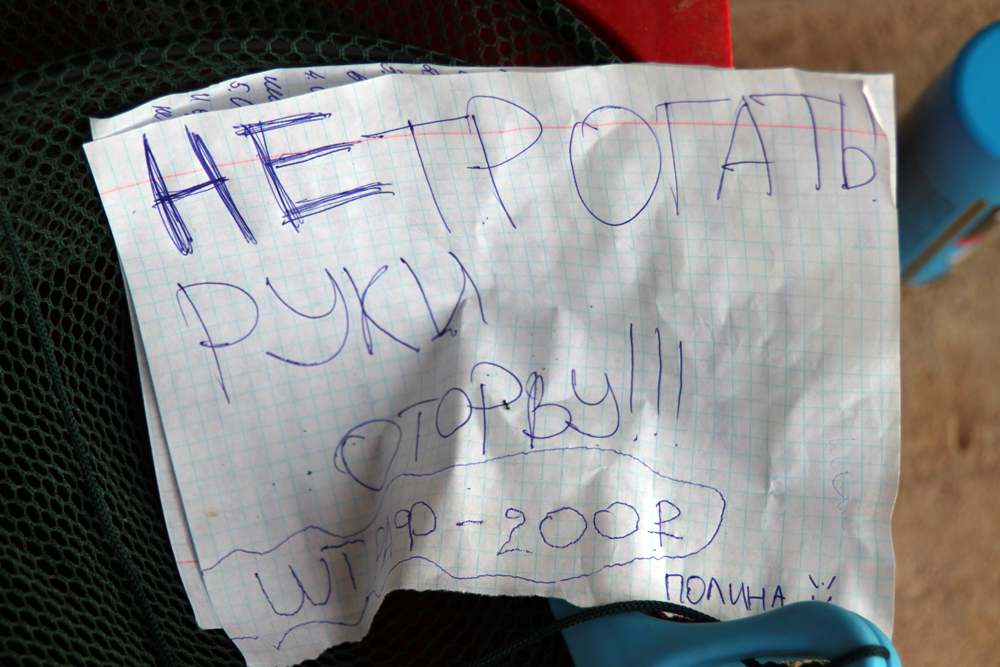 НЕ ТРОГАТЬ!
РУКИ
ОТОРВУ!!!
ШТРАФ - 200₽
ПОЛИНА